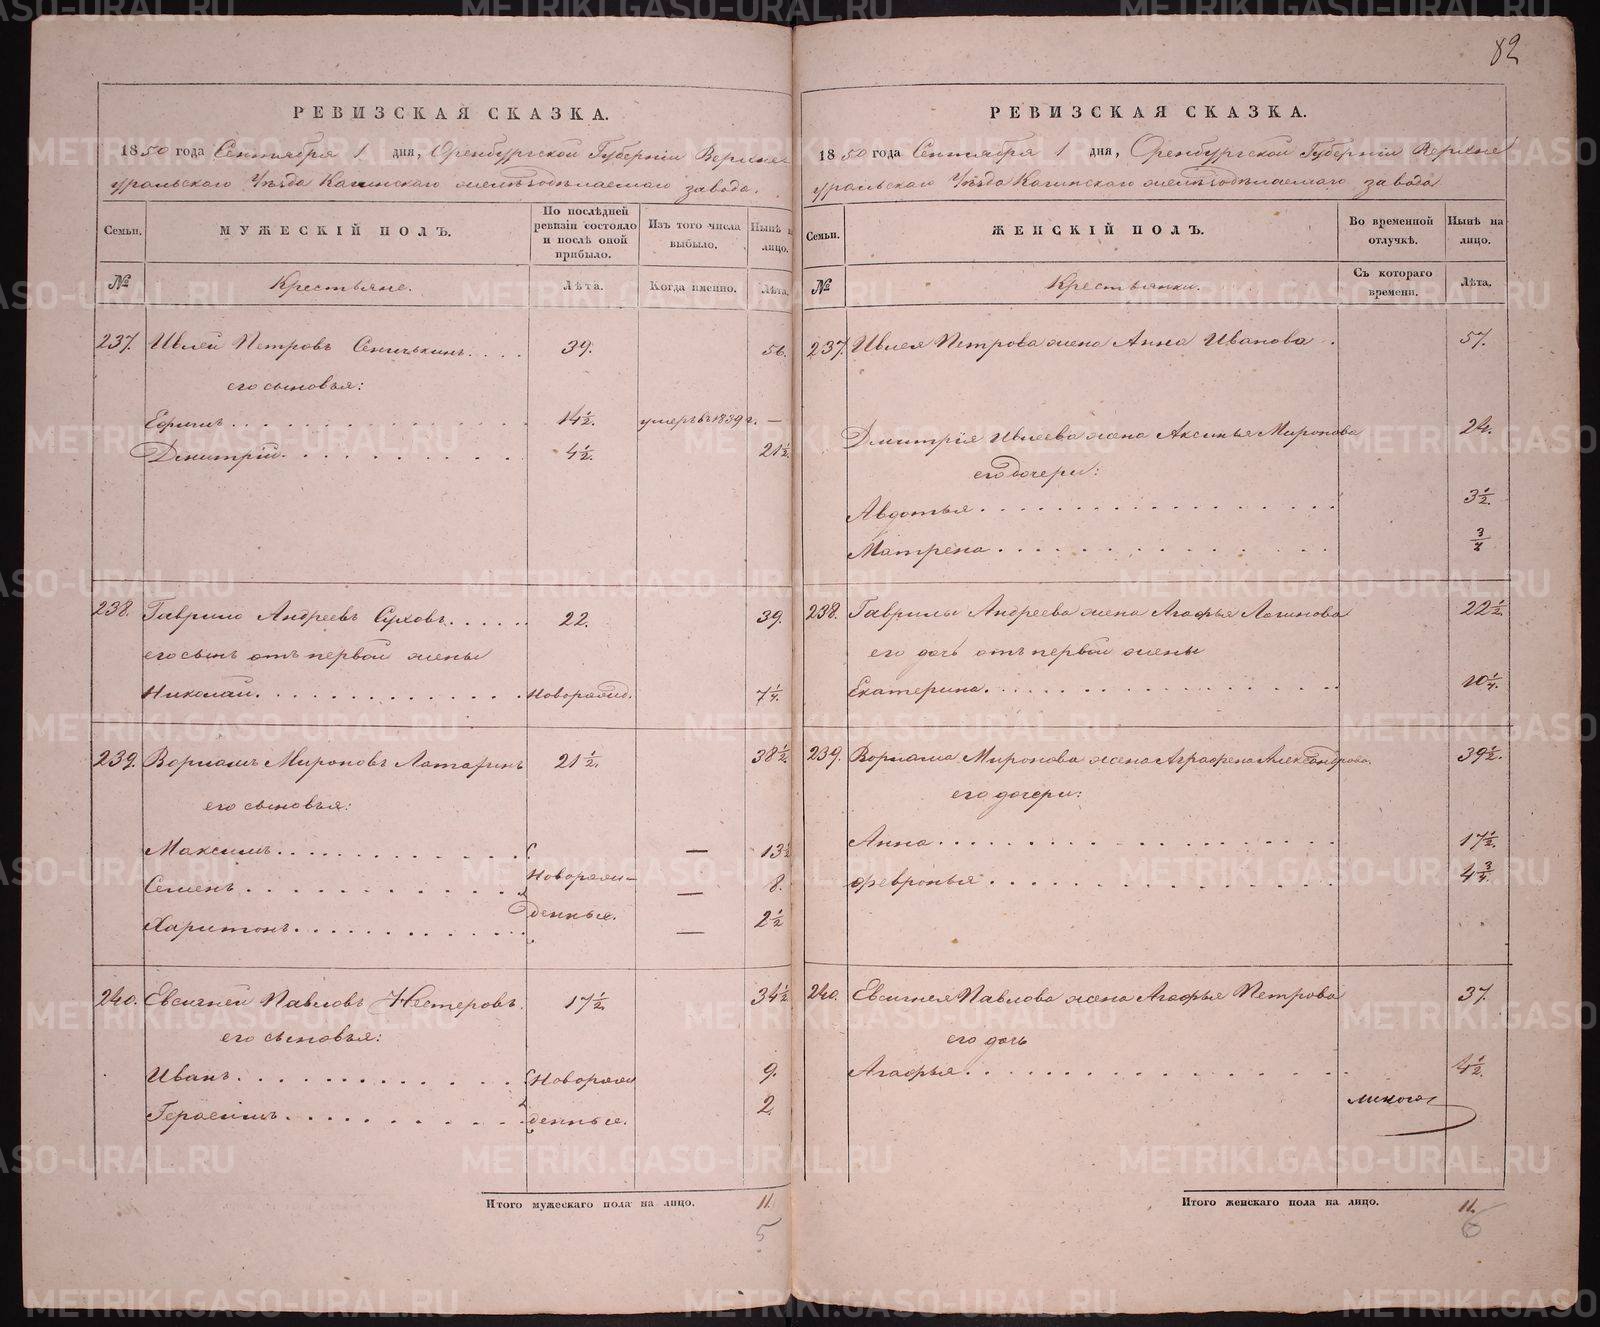 82
РЕВИЗСКАЯ СКАЗКА.
1850 года Сентября 1 дня, Оренбургской Губерніи Верхне
уральскаго Уѣзда Кагинскаго желѣзодѣлаемаго завода.
Семьи.
МУЖЕСКІЙ ПОЛЪ.
По послѣдней ревизіи состояло и послѣ оной прибыло.
Изъ того числа выбыло.
Нынѣ на лицо.
№
Крестьяне.
Лѣта.
Когда именно.
Лѣта.
237. Ивлей Петровъ 39. 56.
его сыновья:
Ефимъ 14½. умеръ въ 1839 г. —
Дмитрій 4½. 21½.
238. Гаврило Андреевъ Суховъ 22. 39.
его сынъ отъ первой жены
Николай новорожд. 7¼.
239. Варламъ Мироновъ 21½. 38½.
его сыновья:
Максимъ — 13½
Семенъ Новорож- — 8.
Харитонъ денные. — 2½
240. Евсигней Павловъ Нестеровъ. 17½. 34½
его сыновья:
Иванъ Новорож 9.
Герасимъ денные. 2.
Итого мужескаго пола на лицо. 11.
5
РЕВИЗСКАЯ СКАЗКА.
1850 года Сентября 1 дня, Оренбургской Губерніи Верхне
уральскаго Уѣзда Кагинскаго желѣзодѣлаемаго завода
Семьи.
ЖЕНСКІЙ ПОЛЪ.
Во временной отлучкѣ.
Нынѣ на лицо.
№
Крестьянки.
Съ котораго времени.
Лѣта.
237. Ивлея Петрова жена Анна Иванова 57.
Дмитрія Ивлеева жена Аксинья Миронова 24.
его дочери:
Авдотья 3½.
Матрена ¾
238. Гаврилы Андреева жена Агафья Логинова 22½.
его дочь отъ первой жены
Екатерина 10¼.
239. Варлама Миронова жена Аграфена Александрова. 39½.
его дочери:
Анна 17½.
Февронья 4¾.
240. Евсигнея Павлова жена Агафья Петрова 37.
его дочь
Агафья 4½.
Итого женскаго пола на лицо. 11.
6
METRIKI.GASO-URAL.RU